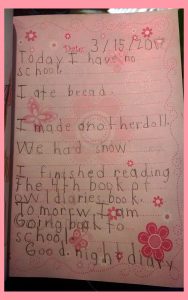 Date: 3/15/201
Today I have no
school.
I ate bread.
I made another doll.
We had snow
I finished reading
the 4th book of
owl diaries book.
Tomorrow I am
Going back to
school
Good night diary